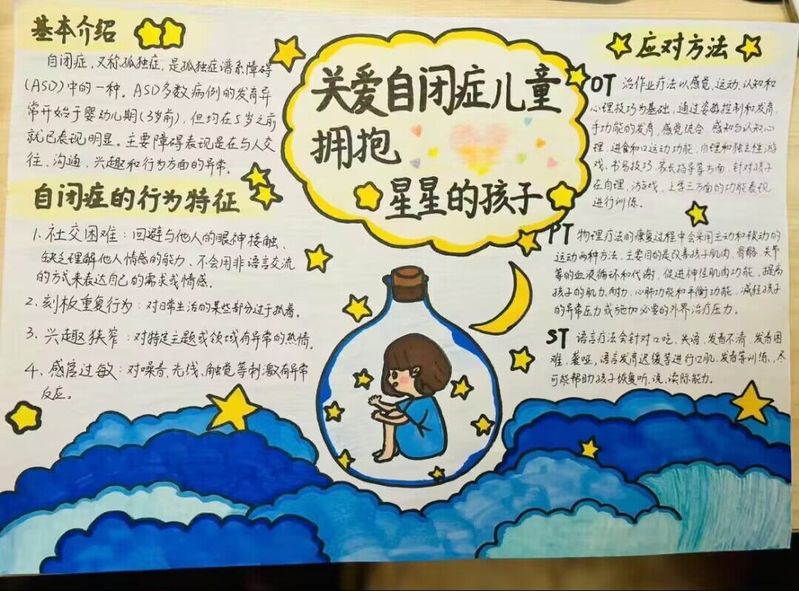 基本介绍
自闭症，又称孤独症，是孤独症谱系障碍
(ASD)中的一种。ASD多数病例的发育异
常开始于婴幼儿期(3岁前)，但均在5岁之前
就已表现明显。主要障碍表现是在与人交
往、沟通、兴趣和行为方面的异常。
自闭症的行为特征
1. 社交困难：回避与他人的眼神接触、
缺乏理解他人情感的能力、不会用非语言交流
的方式来表达自己的需求或情感。
2. 刻板重复行为：对日常生活的某些部分过于执着。
3. 兴趣狭窄：对特定主题或领域有异常的热情。
4. 感官过敏：对噪音、光线、触觉等刺激有异常
反应。
关爱自闭症儿童
拥抱
星星的孩子
应对方法
OT 治作业疗法以感觉、运动、认知和
心理技巧为基础，通过姿势控制和发育，
手功能的发育，感觉统合、感知与认知心
理、进食和口运动功能、自理和独立性，游
戏、书写技巧、家长指导等方面，针对孩子
在自理、游戏、上学三方面的功能表现
进行训练。
PT 物理疗法的康复过程中会采用主动和被动的
运动两种方法，主要目的是改善孩子肌肉、骨骼、关节
等的血液循环和代谢，促进神经肌肉功能，提高
孩子的肌力、耐力、心肺功能和平衡功能，减轻孩子
的异常压力或施加必要的外界治疗压力。
ST 语言疗法会针对口吃、失语、发音不清、发音困
难、聋哑，语言发育迟缓等进行口肌、发音等训练，尽
可能帮助孩子恢复听、说、读际能力。